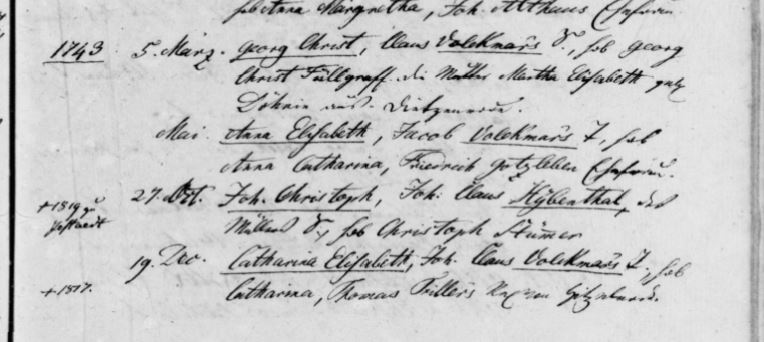 Anna Margretha, Joh. Althaus
1743 5. März. Georg Christ, Claus Volckmar's S., hob Georg
Christ Füllgraff. die Mutter Martha Elisabeth
Mai. Anna Elisabeth, Jacob Volckmar's T., hob
Anna Catharina, Friedrich
+ 1819 zu 27. Oct. Joh. Christoph, Joh. Claus Hybenthal, des
Müllers S., hob Christoph Stümer
19. Dec. Catharina Elisabeth, Joh. Claus Volckmar's T., hob
+ 1817. Catharina, Thomas Triller's